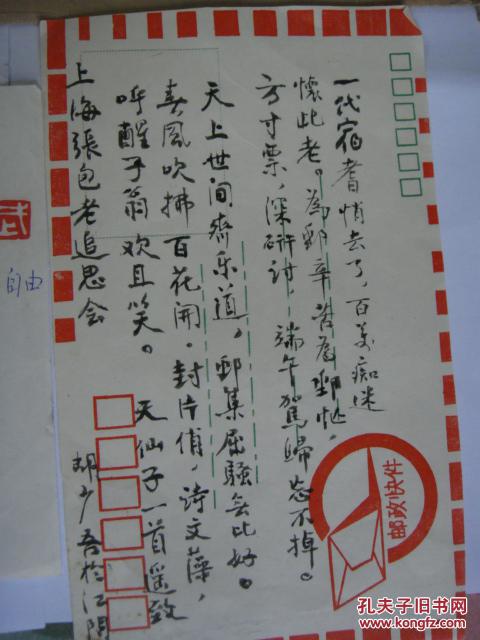 一代宿耆悄去了,百萬痴迷
懷此老。為郵辛苦為郵忙,
方寸票,深研讨,端午駕歸忘不掉。
天上世间齐乐道,郵集屈騷無比好。
春風吹拂百花開。封片俏,诗文藻,
呼醒子翁欢且笑。
天仙子一首遥致
上海張包老追思会
胡少吾於江阴
邮政快件
自由
孔夫子旧书网